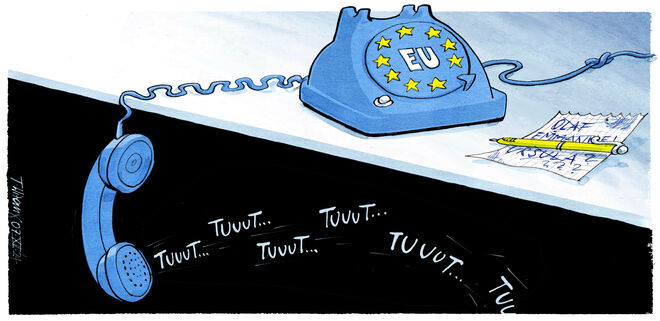 EU
OLAF
EMMANUEL
URSULA?
???
TUUUT...
TUUUT...
TUUUT...
TUUUT...
TUUUT...
TUU